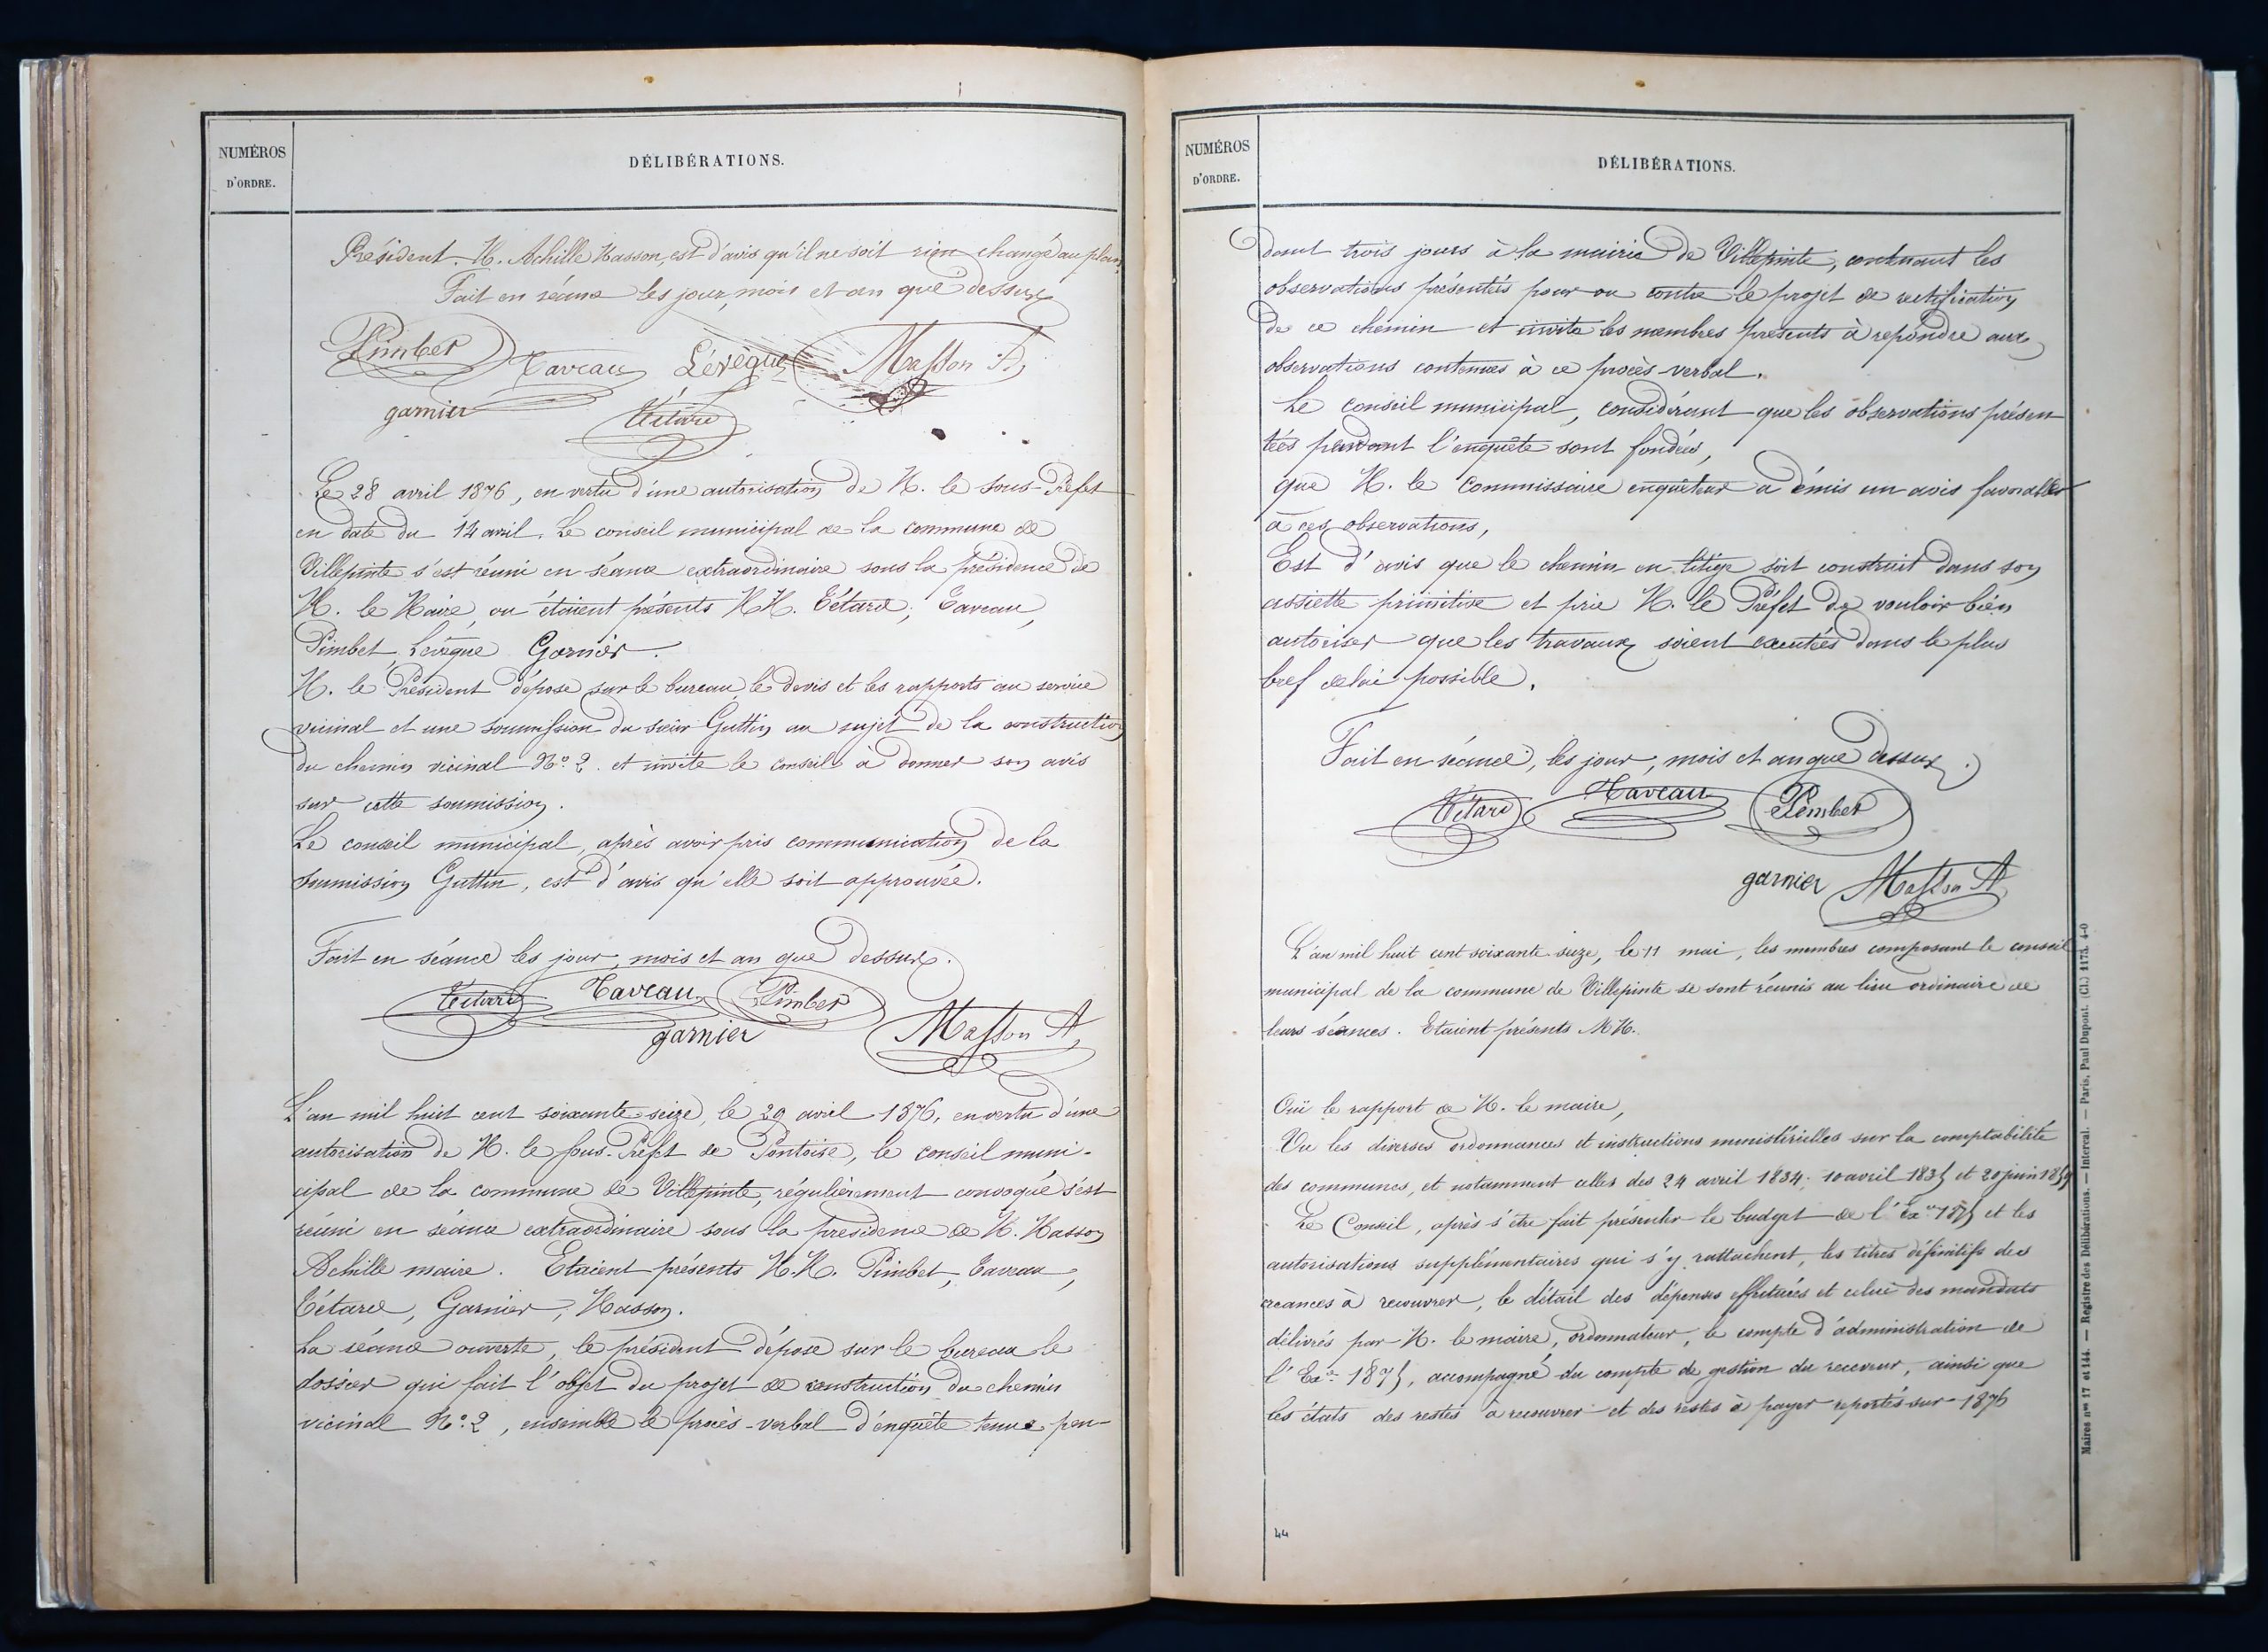 NUMÉROS
D'ORDRE.
DÉLIBÉRATIONS.
Président. M. Achille Masson, est d'avis qu'il ne soit rien changé au plan.
Fait en séance les jour, mois et an que dessus
Pimbet Taveau Lévêque Masson A
garnier Tétard
Le 28 avril 1876, en vertu d'une autorisation de M. le Sous-Préfet
en date du 14 avril. Le conseil municipal de la commune de
Villepinte s'est réuni en séance extraordinaire sous la présidence de
M. le Maire, ou étaient présents MM. Tétard, Taveau,
Pimbet Lévêque Garnier.
M. le Président dépose sur le bureau le devis et les rapports au service
vicinal et une soumission du sieur Guttin au sujet de la construction
du chemin vicinal No. 2. et invite le conseil à donner son avis
sur cette soumission.
Le conseil municipal, après avoir pris communication de la
soumission Guttin, est d'avis qu'elle soit approuvée.
Fait en séance les jour, mois et an que dessus.
Tétard Taveau Pimbet
garnier Masson A,
L'an mil huit cent soixante seize, le 29 avril 1876, en vertu d'une
autorisation de M. le Sous-Préfet de Pontoise, le conseil muni-
cipal de la commune de Villepinte, régulièrement convoqué s'est
réuni en séance extraordinaire sous la présidence de M. Masson
Achille maire. Etaient présents M.M. Pimbet, Taveau,
Tétard, Garnier, Masson.
La séance ouverte, le président dépose sur le bureau le
dossier qui fait l'objet du projet de construction du chemin
vicinal No. 2, ensemble le procès-verbal d'enquête tenue pen-
NUMÉROS
D'ORDRE.
DÉLIBÉRATIONS.
dant trois jours à la mairie de Villepinte, contenant les
observations présentés pour ou contre le projet de rectification
de ce chemin et invite les membres présents à repondre aux
observations contenues à ce procès-verbal.
Le conseil municipal, considérant que les observations présen
tées pendant l'enquête sont fondées,
que M. le Commissaire enquêteur a émis un avis favorable
à ces observations,
Est d'avis que le chemin en litige soit construit dans son
assiette primitive et prie M. le Préfet de vouloir bien
autoriser que les travaux soient exécutés dans le plus
bref delai possible.
Fait en séance, les jour, mois et an que dessus.
Tétard Taveau Pimbet
garnier Masson A,
L'an mil huit cent soixante seize, le 11 mai, les membres composant le conseil
municipal de la commune de Villepinte se sont réunis au lieu ordinaire de
leurs séances. Etaient présents MM.
Ouï le rapport de M. le maire,
Vu les diverses ordonnances et instructions ministérielles sur la comptabilité
des communes, et notamment celles des 24 avril 1834, 10 avril 1835 et 20 juin 1859
Le Conseil, après s'être fait présenter le budget de l'Exce 1875 et les
autorisations supplémentaires qui s'y rattachent, les titres définitifs des
créances à recouvrer, le détail des dépenses effectuées et celui des mandats
délivrés par M. le maire, ordonnateur, le compte d'administration de
l'Exce 1875, accompagné du compte de gestion du receveur, ainsi que
les états des restes à recouvrer et des restes à payer reportés sur 1876
44
Maires nos 17 et 144. — Registre des Délibérations. — Intercal. — Paris, Paul Dupont. (Cl.) 1173. 4-0